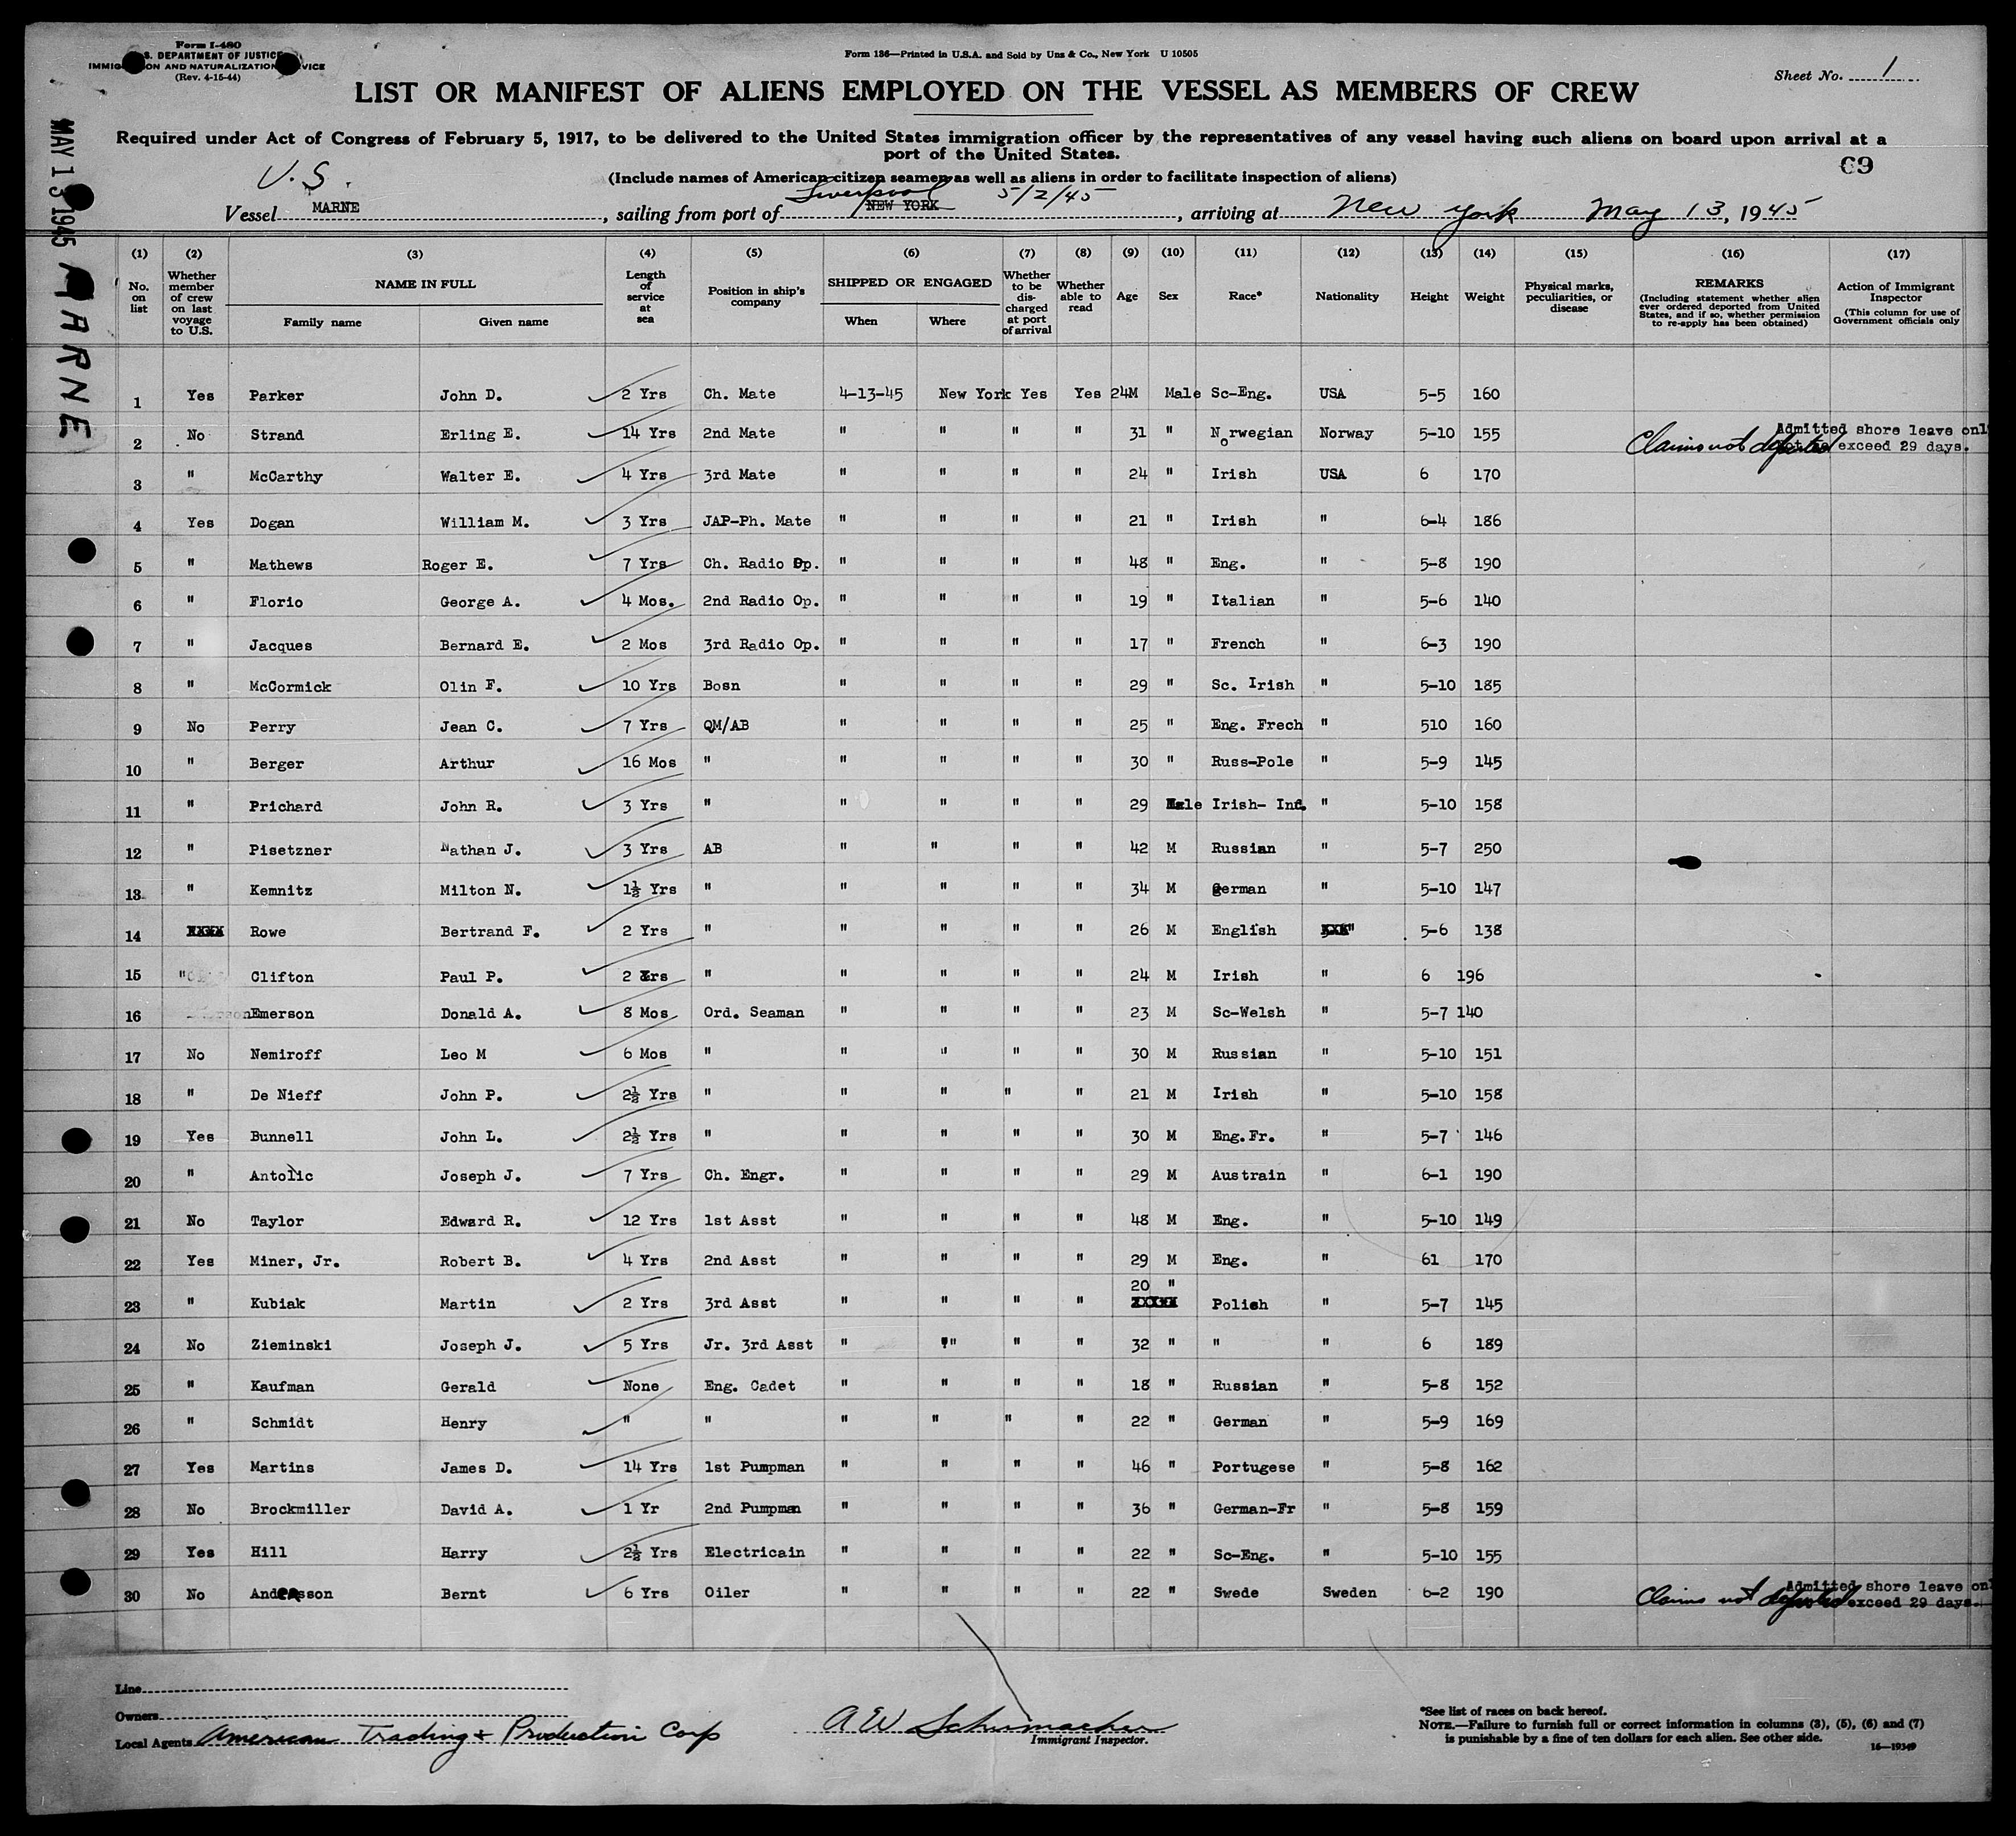 Form I-480
S. DEPARTMENT OF JUSTICE
IMMIG ON AND NATURALIZATION VICE
(Rev. 4-15-44)
Form 136—Printed in U.S.A. and Sold by Uns & Co., New York U 10505
Sheet No. 1
LIST OR MANIFEST OF ALIENS EMPLOYED ON THE VESSEL AS MEMBERS OF CREW
Required under Act of Congress of February 5, 1917, to be delivered to the United States immigration officer by the representatives of any vessel having such aliens on board upon arrival at a
port of the United States.
69
(Include names of American citizen seamen as well as aliens in order to facilitate inspection of aliens)
U.S.
Liverpool 5/2/45
Vessel MARNE, sailing from port of NEW YORK, arriving at New York May 13, 1945
MAY 13 1945
MARNE
(1) (2) (3) (4) (5) (6) (7) (8) (9) (10) (11) (12) (13) (14) (15) (16) (17)
No. on list
Whether member of crew on last voyage to U.S.
NAME IN FULL
Family name Given name
Length of service at sea
Position in ship's company
SHIPPED OR ENGAGED
When Where
Whether to be discharged at port of arrival
Whether able to read
Age
Sex
Race*
Nationality
Height
Weight
Physical marks, peculiarities, or disease
REMARKS
(Including statement whether alien ever ordered deported from United States, and if so, whether permission to re-apply has been obtained)
Action of Immigrant Inspector
(This column for use of Government officials only
1 Yes Parker John D. 2 Yrs Ch. Mate 4-13-45 New York Yes Yes 24M Male Sc-Eng. USA 5-5 160
2 No Strand Erling E. 14 Yrs 2nd Mate " " " " 31 " Norwegian Norway 5-10 155 Claims not deported Admitted shore leave onl
exceed 29 days.
3 " McCarthy Walter E. 4 Yrs 3rd Mate " " " " 24 " Irish USA 6 170
4 Yes Dogan William M. 3 Yrs JAP-Ph. Mate " " " " 21 " Irish " 6-4 186
5 " Mathews Roger E. 7 Yrs Ch. Radio Op. " " " " 48 " Eng. " 5-8 190
6 " Florio George A. 4 Mos. 2nd Radio Op. " " " " 19 " Italian " 5-6 140
7 " Jacques Bernard E. 2 Mos 3rd Radio Op. " " " " 17 " French " 6-3 190
8 " McCormick Olin F. 10 Yrs Bosn " " " " 29 " Sc. Irish " 5-10 185
9 No Perry Jean C. 7 Yrs QM/AB " " " " 25 " Eng. Frech " 510 160
10 " Berger Arthur 16 Mos " " " " " 30 " Russ-Pole " 5-9 145
11 " Prichard John R. 3 Yrs " " " " " 29 Male Irish- Ind. " 5-10 158
12 " Pisetzner Nathan J. 3 Yrs AB " " " " 42 M Russian " 5-7 250
13 " Kemnitz Milton N. 1½ Yrs " " " " " 34 M German " 5-10 147
14 XXXX Rowe Bertrand F. 2 Yrs " " " " " 26 M English XXX" 5-6 138
15 " Clifton Paul P. 2 Yrs " " " " " 24 M Irish " 6 196
16 Emerson Donald A. 8 Mos Ord. Seaman " " " " 23 M Sc-Welsh " 5-7 140
17 No Nemiroff Leo M 6 Mos " " " " " 30 M Russian " 5-10 151
18 " De Nieff John P. 2½ Yrs " " " " " 21 M Irish " 5-10 158
19 Yes Bunnell John L. 2½ Yrs " " " " " 30 M Eng.Fr. " 5-7 146
20 " Antolic Joseph J. 7 Yrs Ch. Engr. " " " " 29 M Austrain " 6-1 190
21 No Taylor Edward R. 12 Yrs 1st Asst " " " " 48 M Eng. " 5-10 149
22 Yes Miner, Jr. Robert B. 4 Yrs 2nd Asst " " " " 29 M Eng. " 61 170
23 " Kubiak Martin 2 Yrs 3rd Asst " " " " 20 " XXXXX Polish " 5-7 145
24 No Zieminski Joseph J. 5 Yrs Jr. 3rd Asst " " " " 32 " " " 6 189
25 " Kaufman Gerald None Eng. Cadet " " " " 18 " Russian " 5-8 152
26 " Schmidt Henry " " " " " " 22 " German " 5-9 169
27 Yes Martins James D. 14 Yrs 1st Pumpman " " " " 46 " Portugese " 5-8 162
28 No Brockmiller David A. 1 Yr 2nd Pumpman " " " " 36 " German-Fr " 5-8 159
29 Yes Hill Harry 2½ Yrs Electricain " " " " 22 " Sc-Eng. " 5-10 155
30 No Andersson Bernt 6 Yrs Oiler " " " " 22 " Swede Sweden 6-2 190 Claims not deported Admitted shore leave on
exceed 29 days.
Line
Owners
Local Agents American Trading & Production Corp
A W Schumacher
Immigrant Inspector.
*See list of races on back hereof.
NOTE.—Failure to furnish full or correct information in columns (3), (5), (6) and (7)
is punishable by a fine of ten dollars for each alien. See other side.
16—19349